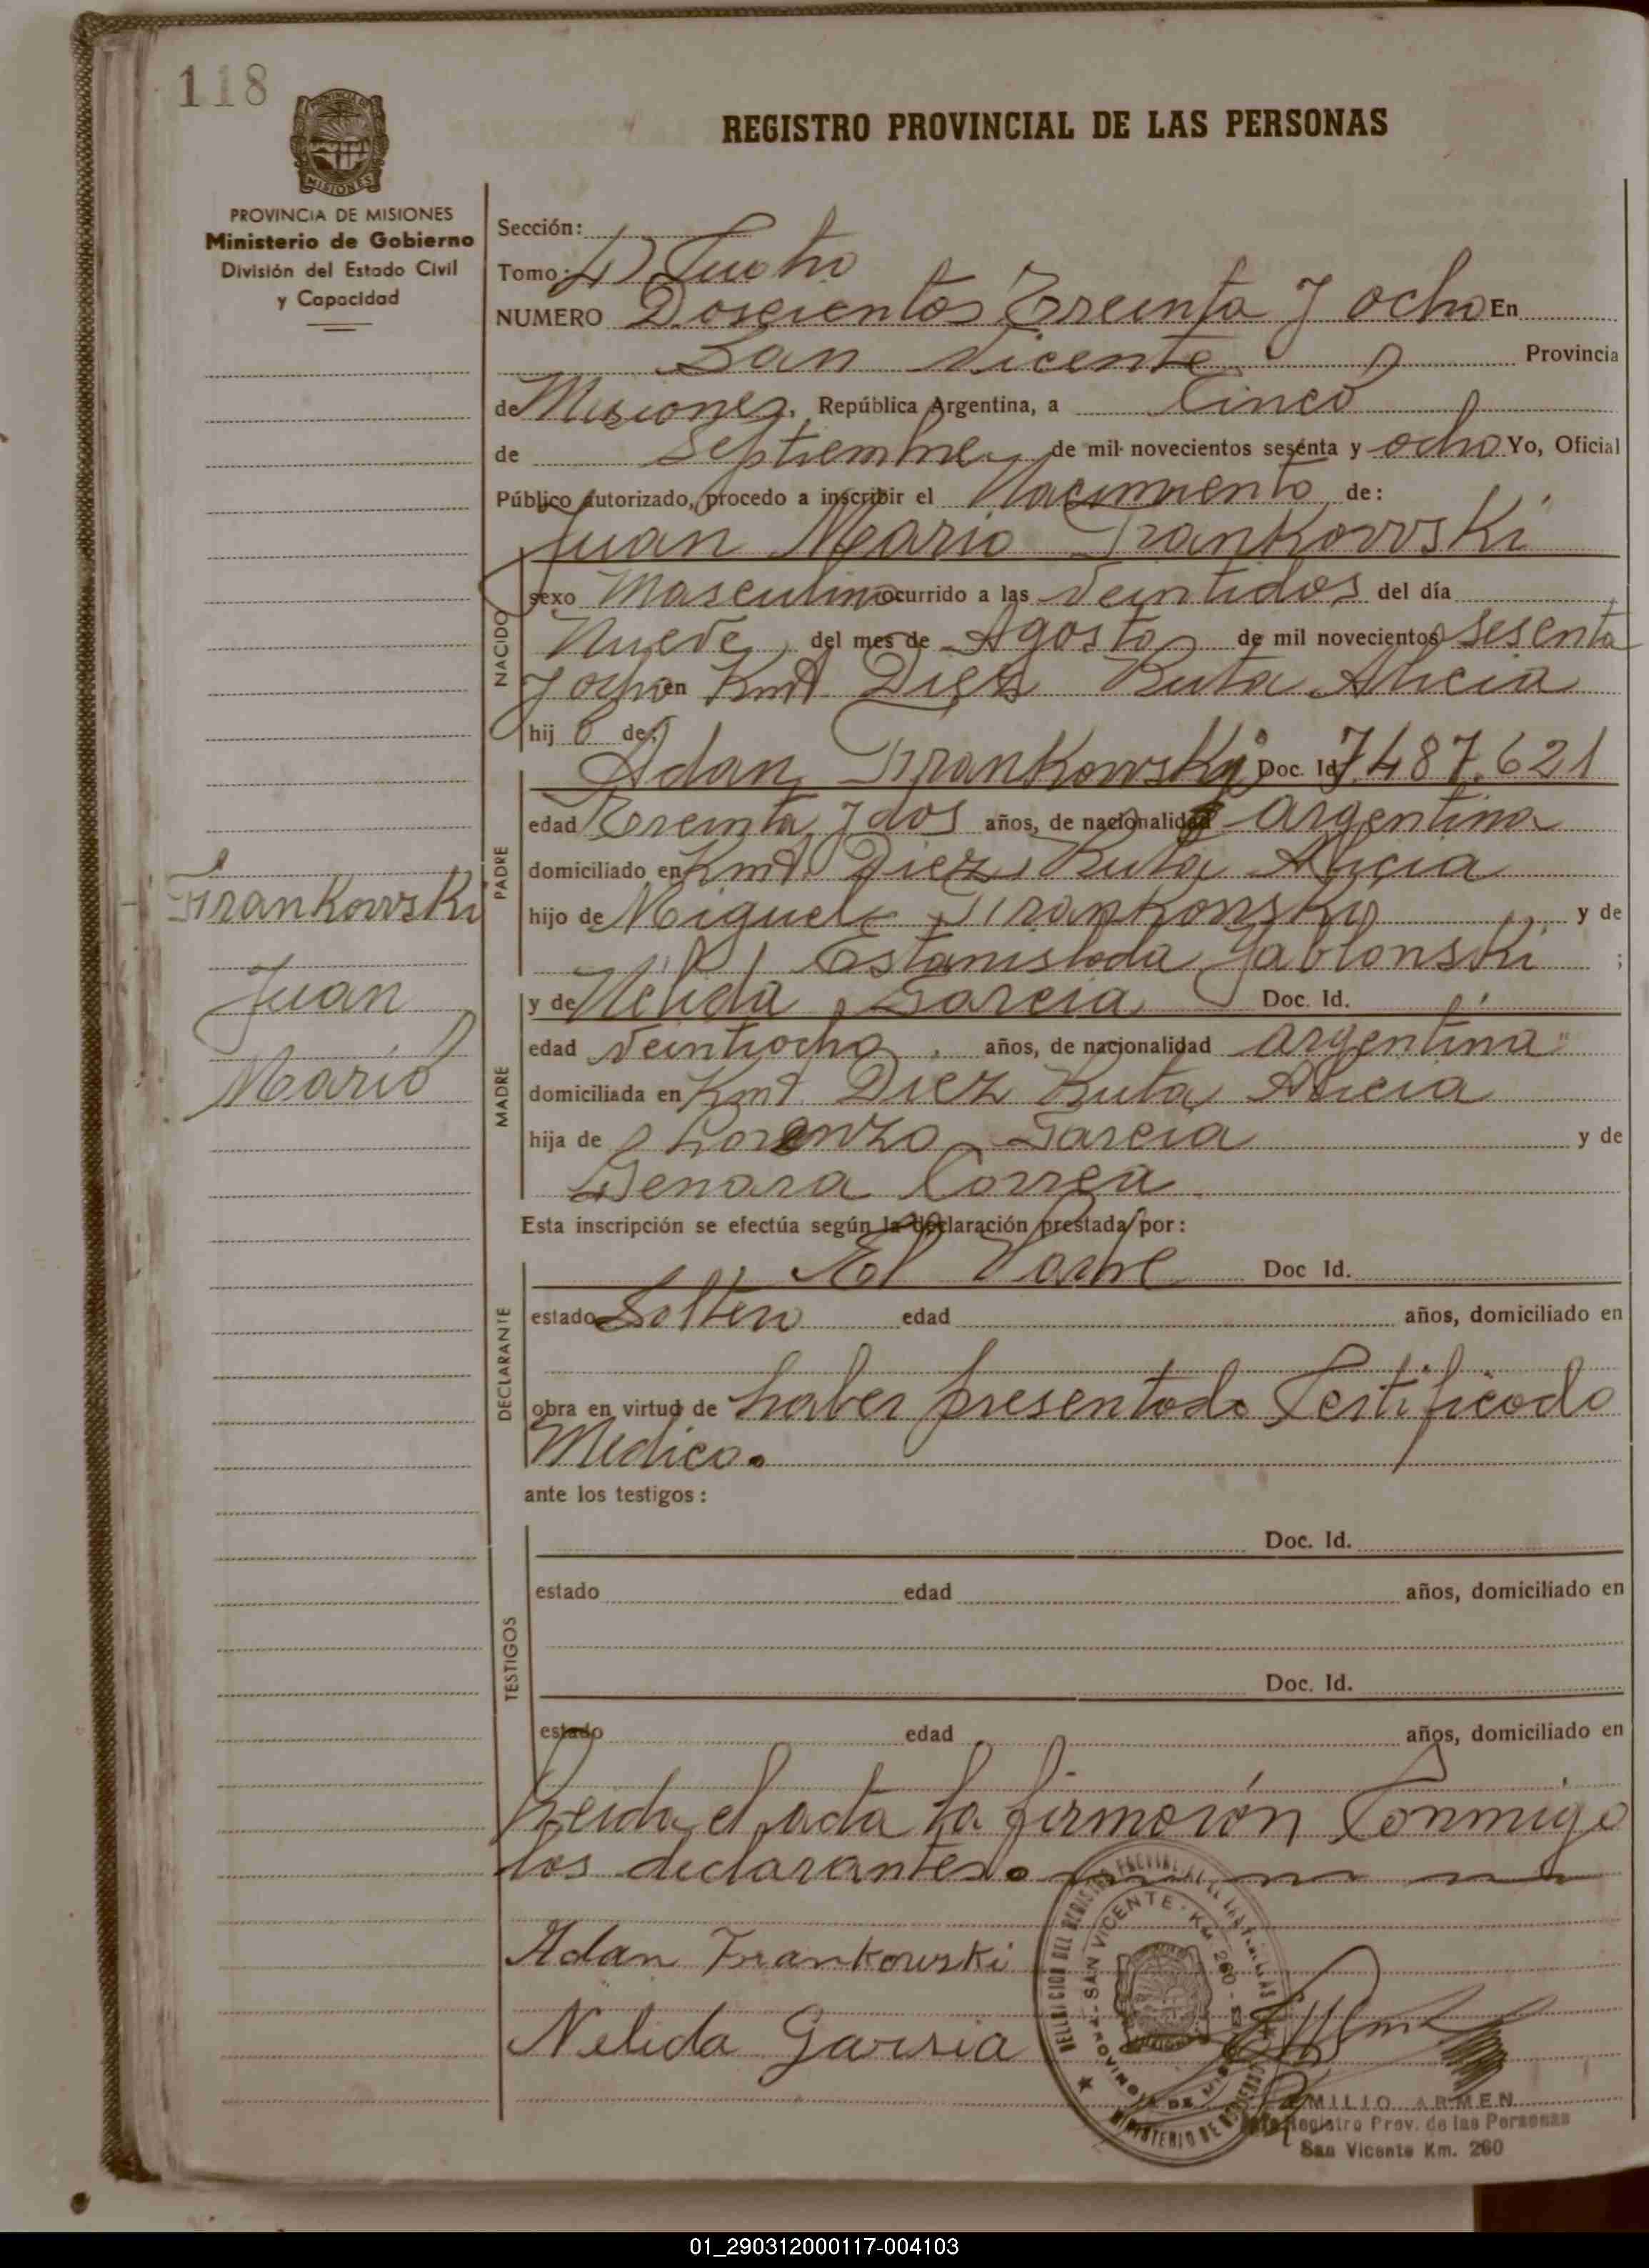 118
PROVINCIA DE MISIONES
MISIONES
PROVINCIA DE MISIONES
Ministerio de Gobierno
División del Estado Civil
y Capacidad
REGISTRO PROVINCIAL DE LAS PERSONAS
Sección:
Tomo:
NUMERO Doscientos Treinta y ocho En
San Vicente Provincia
de Misiones, República Argentina, a Cinco
de Septiembre de mil novecientos sesenta y ocho Yo, Oficial
Público autorizado, procedo a inscribir el Nacimiento de:
Juan Mario Frankowski
NACIDO
sexo Masculino ocurrido a las Veintidos del día
Nueve del mes de Agosto de mil novecientos sesenta
y ocho en Kmt Diez Ruta Alicia
hij o de:
PADRE
Adan Frankowski Doc. Id 7487.621
edad Treinta y dos años, de nacionalidad argentina
domiciliado en Kmt. Diez Ruta Alicia
hijo de Miguel Frankonski y de
Estanisloda Jablonski ;
Frankowski
Juan
Mario
MADRE
y de Nelida Garcia Doc. Id.
edad Veintiocho años, de nacionalidad argentina
domiciliada en Kmt. Diez Ruta Alicia
hija de Lorenzo Garcia y de
Genara Correa
Esta inscripción se efectúa según la declaración prestada por:
DECLARANTE
El Padre Doc Id.
estado Soltero edad años, domiciliado en
obra en virtud de haber presentado Certificado
Medico.
ante los testigos:
TESTIGOS
Doc. Id.
estado edad años, domiciliado en
Doc. Id.
estado edad años, domiciliado en
Leida el acta la firmarón Conmigo
los declarantes.
Adan Frankowski
Nelida Garsia
SAN VICENTE - KM 260
PROVINCIA DE MIS
MINISTERIO DE
EMILIO ARMEN
Registro Prov. de las Personas
San Vicente Km. 260
01_290312000117-004103